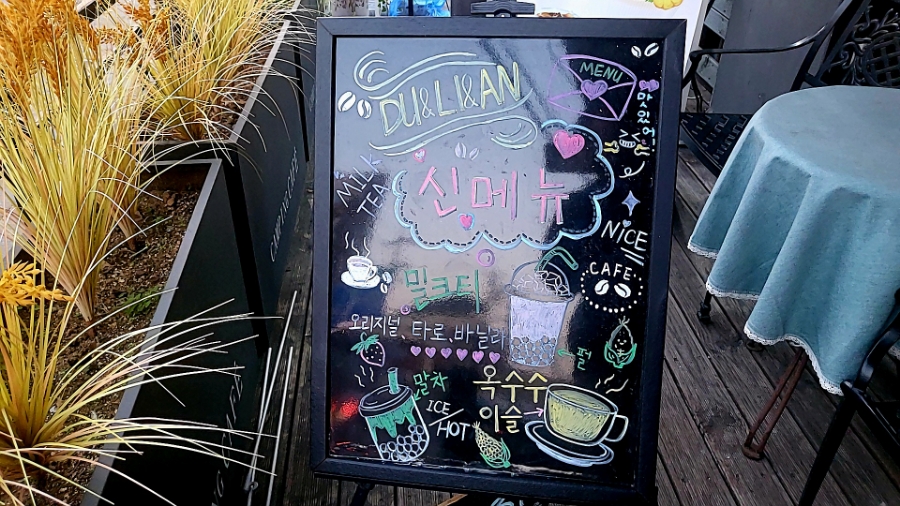 DU&LI&AN
MENU
맛있어!
MILK
TEA
신메뉴
NICE
CAFE
밀크티
오리지널, 타로, 바닐라
펄
말차
ICE/HOT
옥수수
이슬